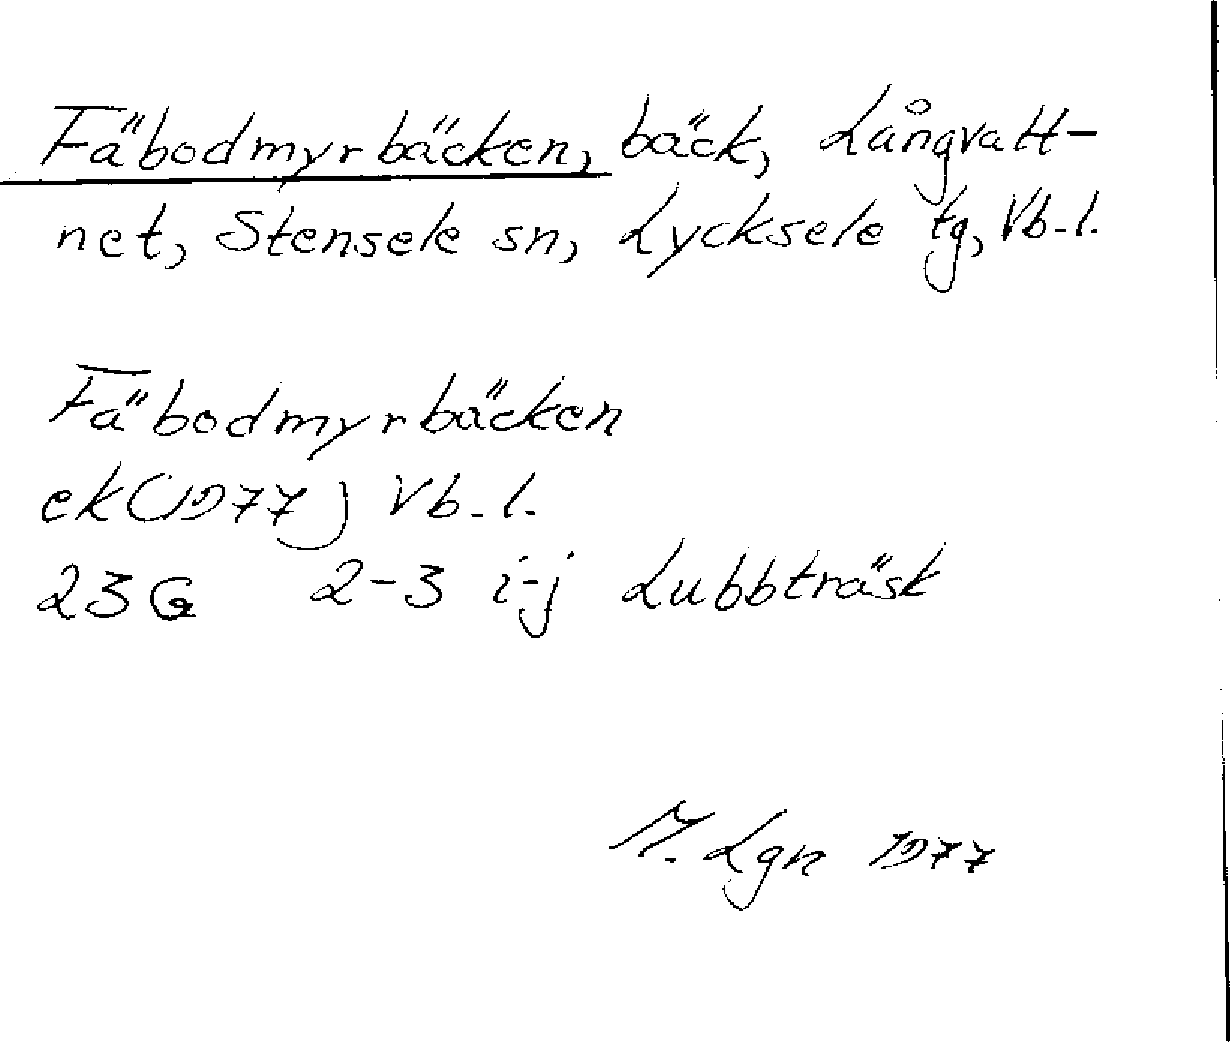 Fäbodmyrbäcken, bäck, Långvatt-
net, Stensele sn, Lycksele tg, Vb. l.
Fäbodmyrbäcken
ek (1977) Vb. l.
23 G 2-3 i-j Lubbträsk
M. Lgn 1977